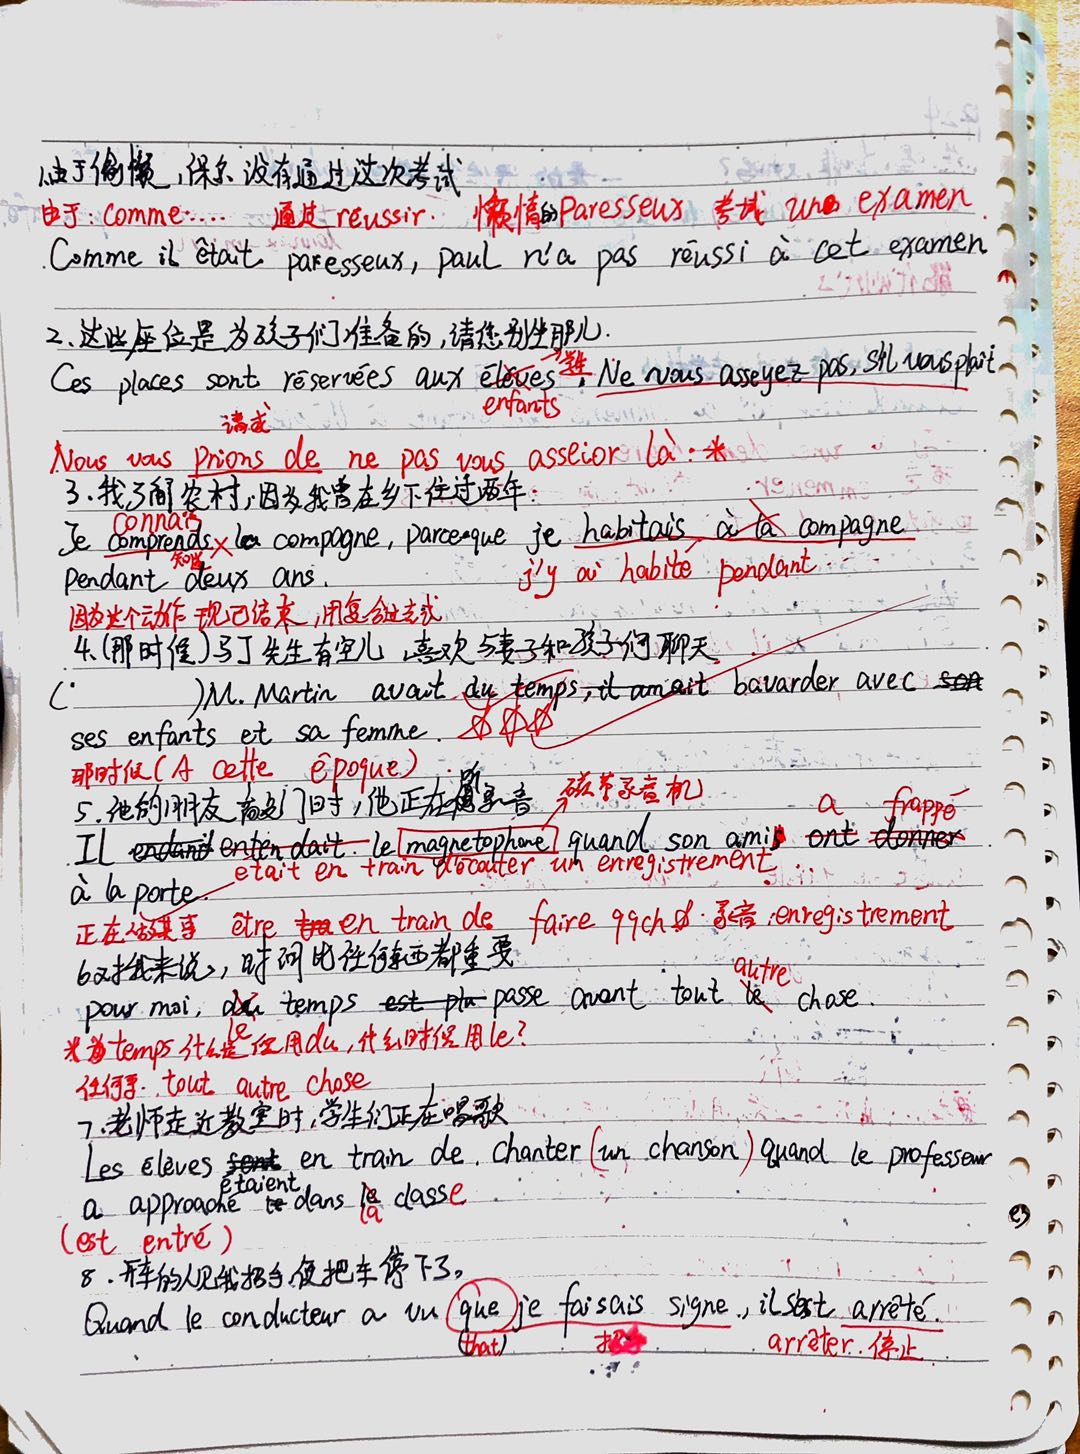 1.由于偷懒,保尔没有通过这次考试
由于: comme..... 通过 réussir. 懒惰的 Paresseux 考试 un examen.
Comme il était paresseux, paul n'a pas réussi à cet examen
2.这些座位是为孩子们准备的,请您别坐那儿.
Ces places sont réservées aux élèves →学生. Ne vous asseyez pas, s'il vous plaît
enfants
请求
Nous vous prions de ne pas vous asseior là:*
3.我了解农村,因为我曾在乡下住过两年.
connais
Je comprends la compagne, parceque je habitais à la compagne
知道
pendant deux ans. j'y ai habité pendant.
因为这个动作 现已结束,用复合过去式
4.(那时候)马丁先生有空儿,喜欢与妻子和孩子们聊天
( )M. Martin avait du temps, il amait bavarder avec son
ses enfants et sa femme.
那时候(A cette époque)
5.他的朋友敲门时,他正在听录音 磁带录音机 a frappé
Il entendait le magnetophone quand son amis ont donner
était en train d'écouter un enregistrement
à la porte.
正在做某事 être en train de faire qqch. 录音:enregistrement
6.对我来说,时间比任何东西都重要
autre
pour moi, du temps est plu passe avant tout le chose.
le
*为temps什么是使用du,什么时候用le?
任何事. tout autre chose
7.老师走近教室时,学生们正在唱歌
Les élèves sont en train de chanter (un chanson) quand le professeur
étaient
a approaché te dans le classe
la
(est entré)
8.开车的人见我招手,便把车停下了。
Quand le conducteur a vu que je faisais signe, il s'est arrêté.
(that) 招手 arrêter.停止